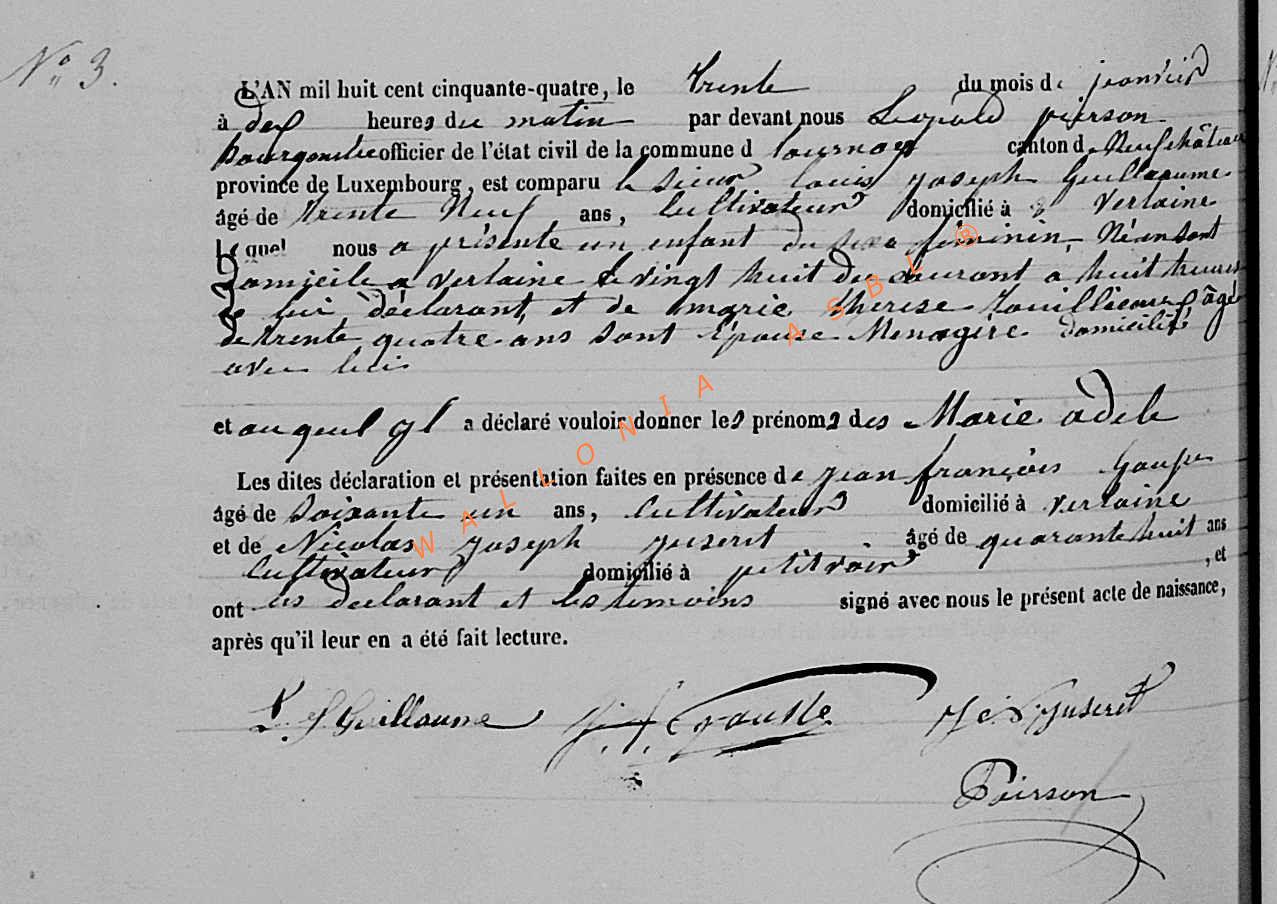 N° 3.
L'AN mil huit cent cinquante-quatre, le trente du mois de janvier
à dex heures du matin par devant nous Leopold pierson
Bourgmestre officier de l'état civil de la commune d tournay canton d Neufchâteau
province de Luxembourg, est comparu le sieur louis joseph Guillaume
âgé de trente Neuf ans, Cultivateur domicilié à verlaine
Lequel nous a présente un enfant du sexe féminin, Né en sont
Domicile a verlaine le vingt huit du courant à huit heures
de lui déclarant, et de marie therese âgé
de trente quatre ans sont épouse Menagere domicilié
avec lui
et auquel il a déclaré vouloir donner les prénoms des Marie adele
Les dites déclaration et présentation faites en présence de jean françois
âgé de soixante un ans, Cultivateur domicilié à verlaine
et de Nicolas joseph juseret âgé de quarante huit ans
Cultivateur domicilié à petitvoir, et
ont les declarant et les temoins signé avec nous le présent acte de naissance,
après qu'il leur en a été fait lecture.
L. J Guillaume j. f. Juseret
Pierson
WALLONIA ASBL ®